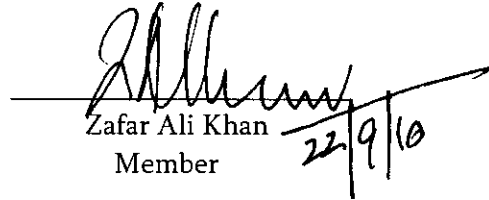 Zafar Ali Khan
Member
22/9/10